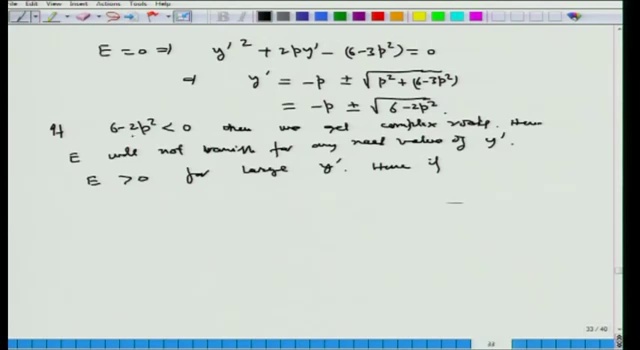 Edit View Insert Actions Tools Help
E = 0 ⇒ y'² + 2py' - (6-3p²) = 0
⇒ y' = -p ± √p² + (6-3p²)
= -p ± √6-2p².
If 6-2p² < 0 then we get complex roots. Hence
E will not vanish for any real value of y'.
E > 0 for large y'. Hence if
33 / 40
33